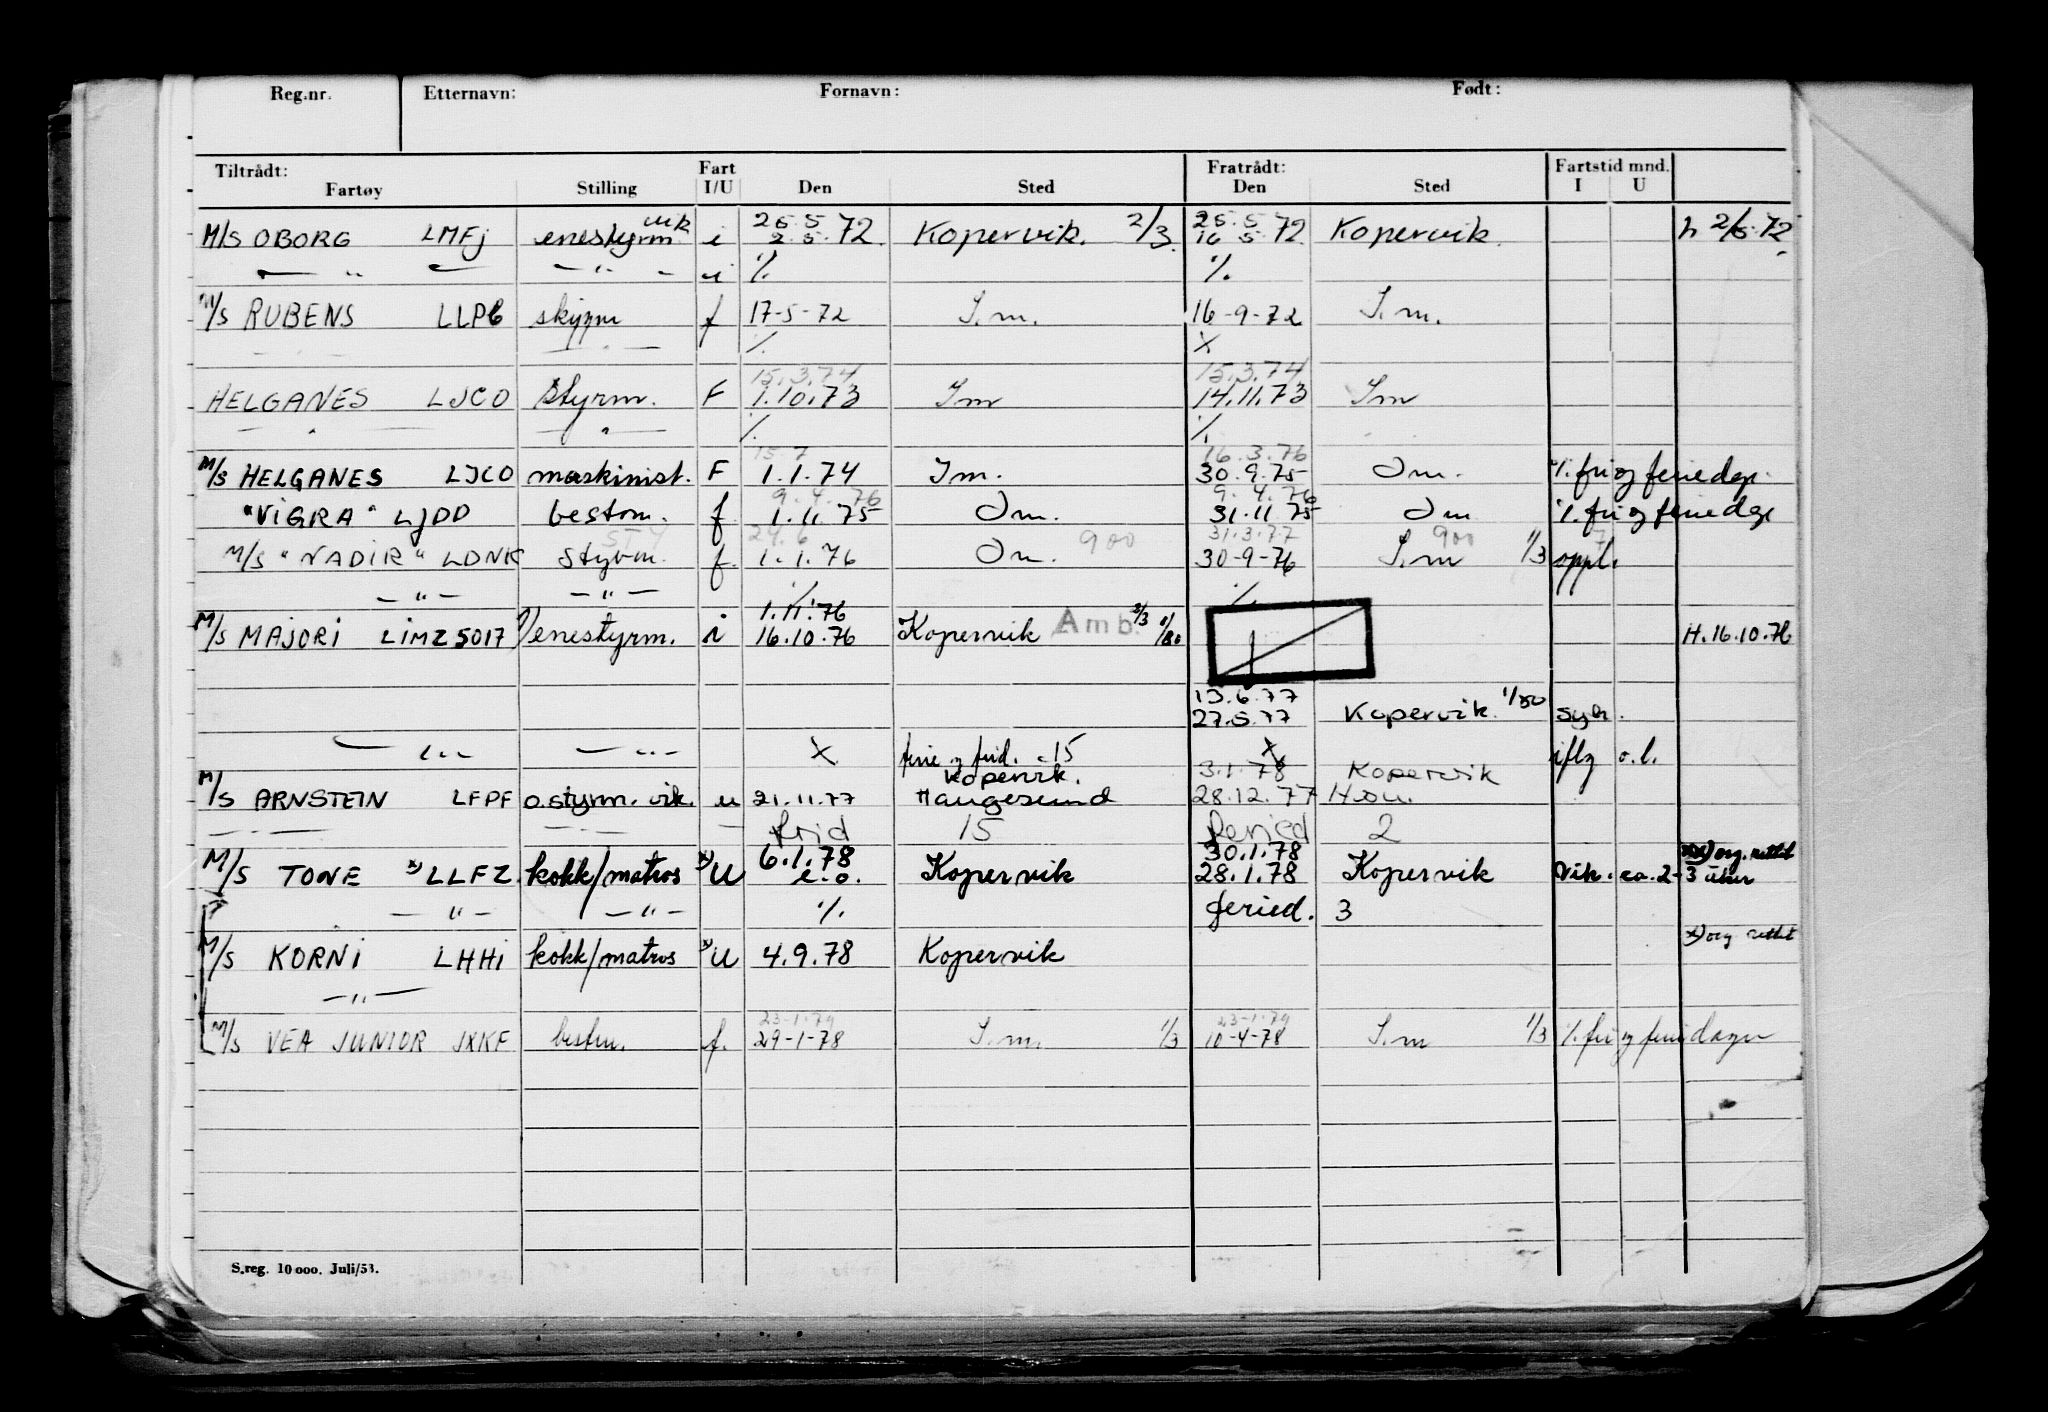 Reg.nr. Etternavn: Fornavn: Født:
Tiltrådt: Fart Fratrådt: Fartstid mnd.
Fartøy Stilling I/U Den Sted Den Sted I U
vik 25.5 25.5
M/S OBORG LMFj enestyrm i 2.5.72 Kopervik. 2/3 16 5.72 Kopervik h 2/5.72
— " — — " — i % %
M/S RUBENS LLPB skyprn f 17-5-72 S.m. 16-9-72 S.m.
— " — % X
15.3.74 15.3.74
HELGANES LJCO Styrm. F 1.10.73 Sm 14.11.73 Sm
— " — — " — % %
15 7 16.3.76
M/S HELGANES LJCO maskinist. F 1.1.74 Sm. 30.9.75 Sm. %. fri og feriedgr.
9.4.76 9.4.76
"VIGRA" LJDD bestm. f 1.11.75 Sm. 31.11.75 Sm %. fri og feriedgr
STY 24.6 900 31.3.77 900 7
M/S "NADIR" LDNK Styrm. f. 1.1.76 Sm. 30-9-76 S.m 1/3 oppl.
— " — — " — % %
1.11.76
M/S MAJORI LIMZ 5017 enestyrm. i 16.10.76 Kopervik Amb. 3/3 1/80 H.16.10.76
13.6.77
27.5.77 Kopervik. 1/80 syk.
— " — — " — X ferie og frid. 15 X iflg o.l.
Kopervik. 3.1.78 Kopervik
M/S ARNSTEIN LFPF o.styrm. vik. u 21.11.77 Haugesund 28.12.77 Hau.
— — — frid 15 Feried 2
6.1.78 30.1.78 xx) org. rettet
M/S TONE x) LLFZ kokk/matros x) U e.o. Kopervik 28.1.78 Kopervik Vik. ca. 2-3 uker
— " — — " — % feried. 3
x) org rettet
M/S KORNI LHHI kokk/matros x) U 4.9.78 Kopervik
— " —
23-1-79 23-1-79
M/S VEA JUNIOR JXKF bestm. f. 29-1-78 S.m. 1/3 10-4-78 S.m 1/3 %. fri og feriedager
S.reg. 10 000. Juli/53.